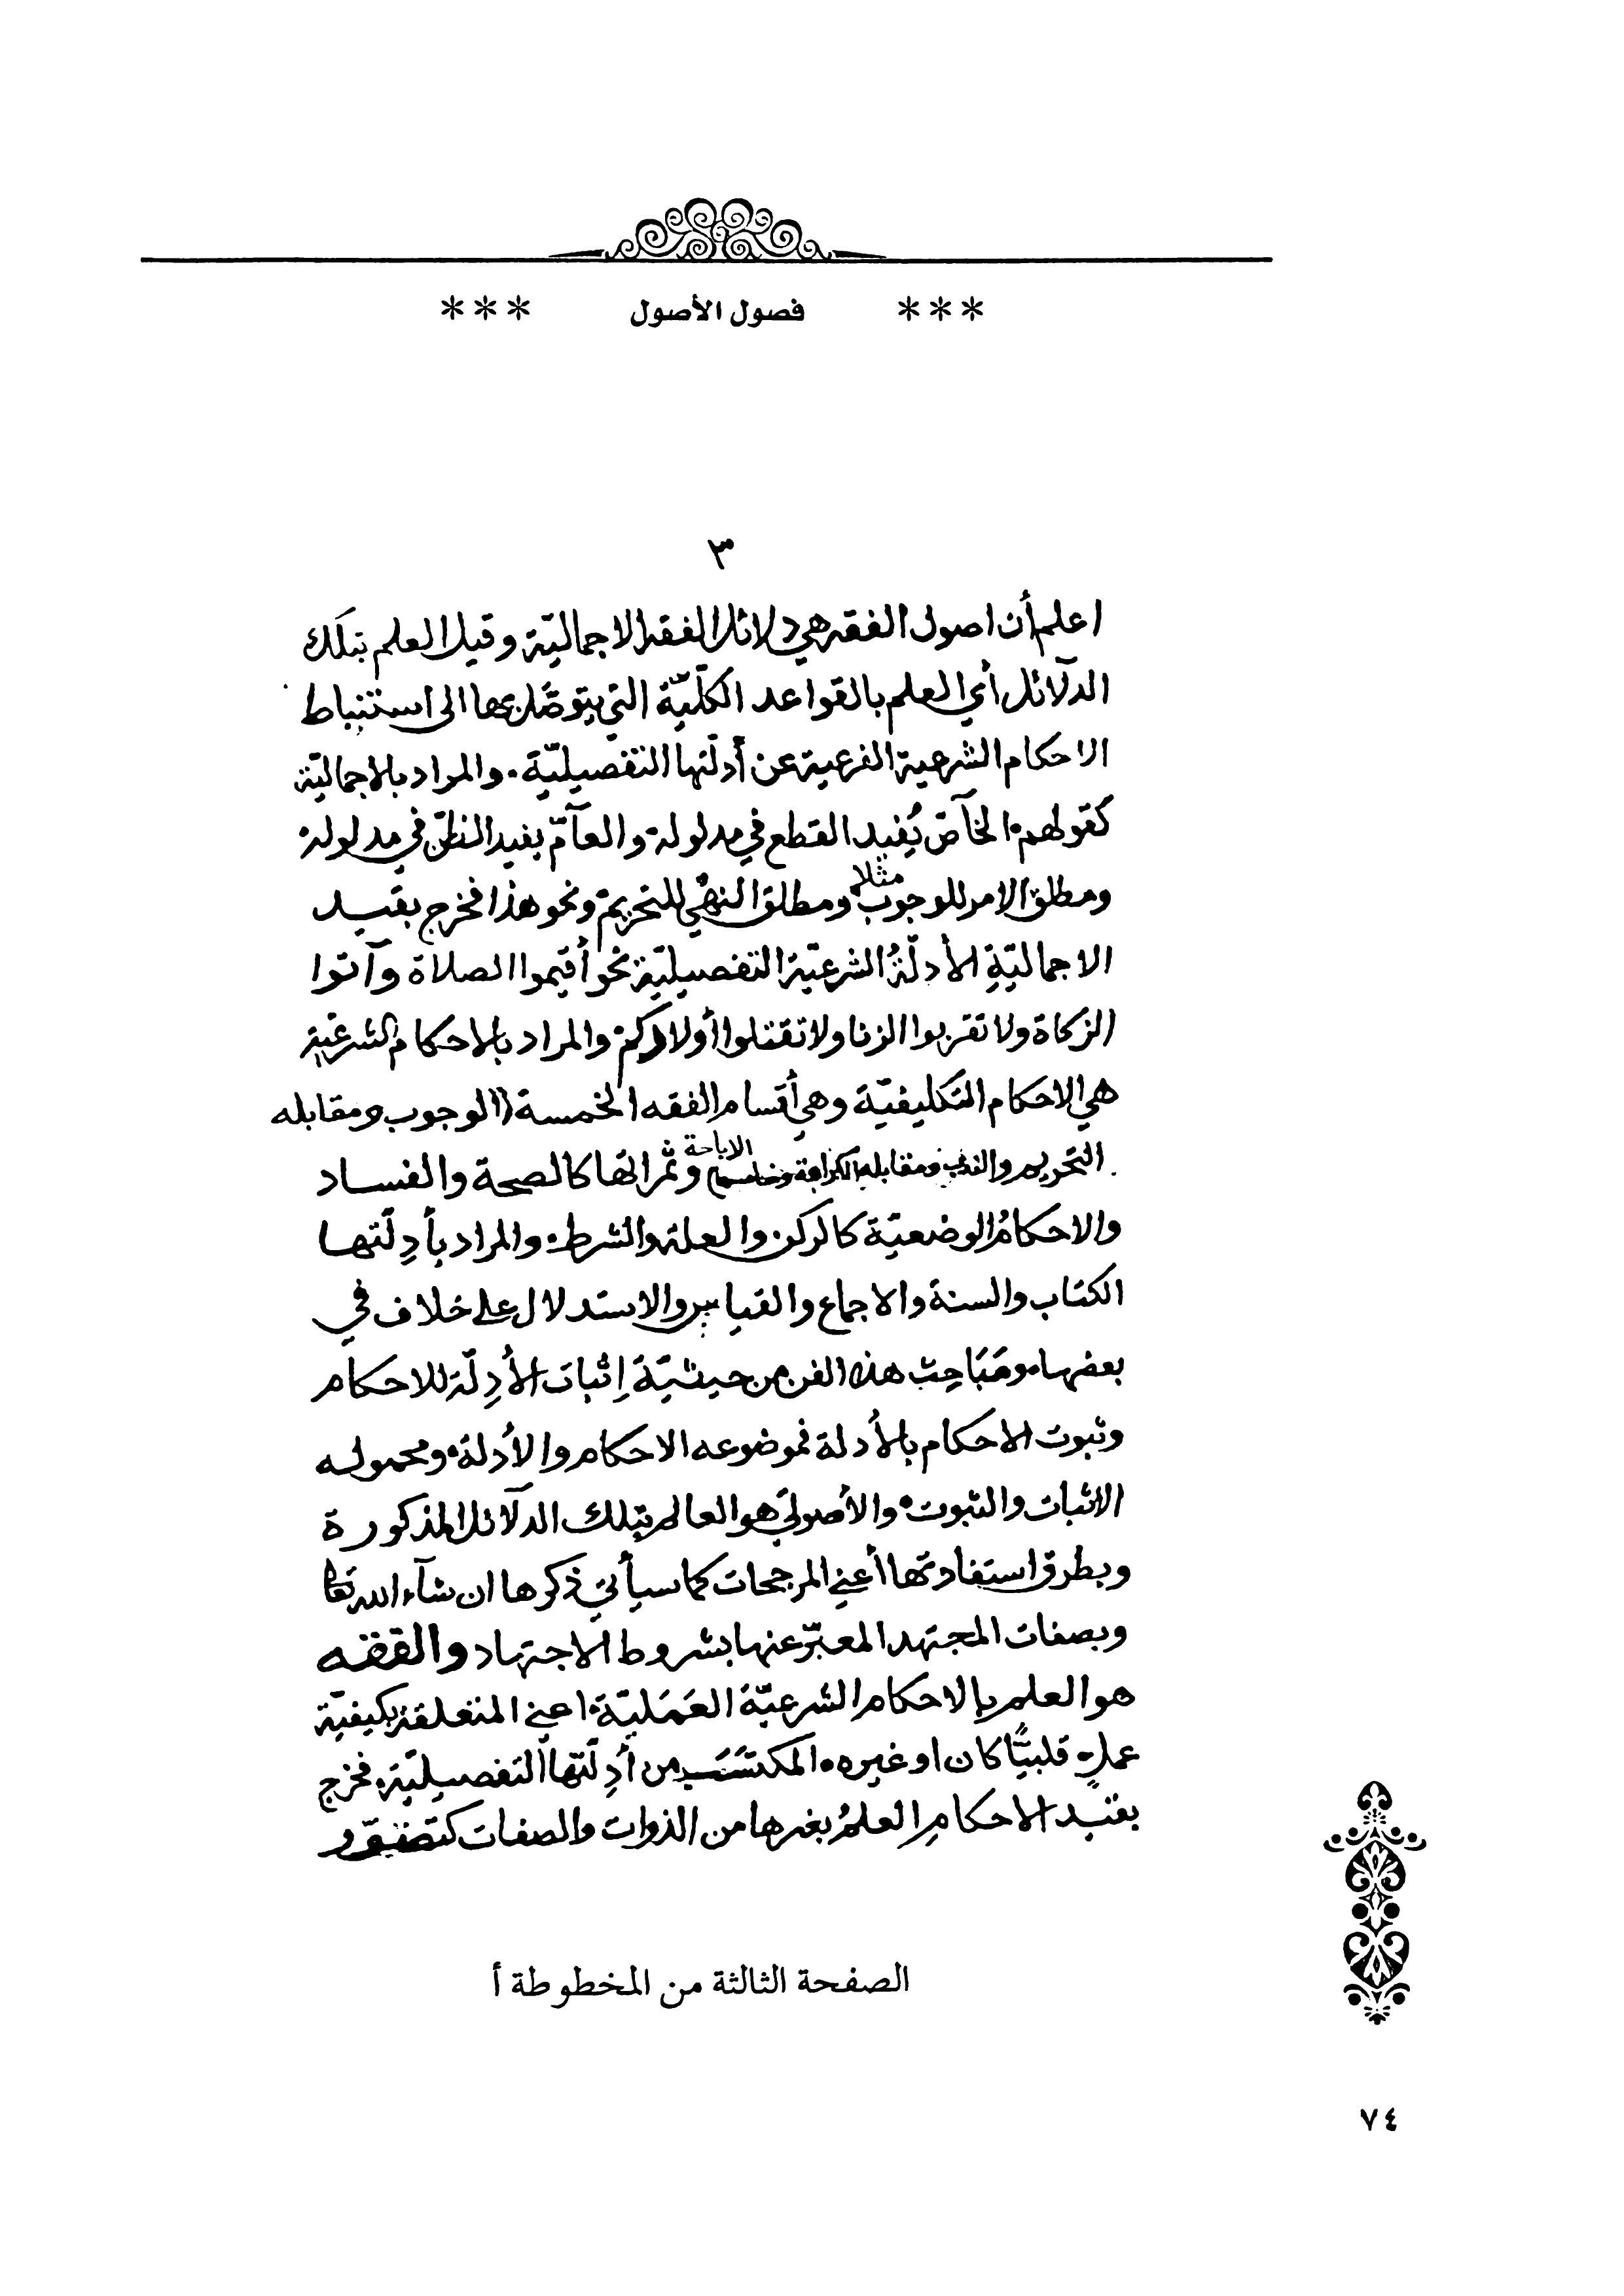 *** فصول الأصول ***
٣
اعلم أن اصول الفقه هي دلائل الفقه الاجماليّة وقيل العلم بتلك
الدلآئل أي العلم بالقواعد الكلّيّة التي يتوصّل بها الى استنباط
الاحكام الشرعية الفرعية عن أدلّتها التفصيليّة. والمراد بالاجماليّة
كقولهم الخآصّ يُفيد القطع في مدلوله والعآمّ يفيد الظنّ في مدلوله
ومطلق الامر للوجوب مثلا ومطلق النهي للتحريم ونحو هذا فخرج بقيد
الاجماليّةِ الأدلّةُ الشرعيّة التفصيليّة نحو أقيموا الصلاة وآتوا
الزكاة ولا تقربوا الزنا ولا تقتلوا أولادكم والمراد بالاحكام الشرعيّة
هي الاحكام التكليفيّة وهي أقسام الفقه الخمسة (الوجوب ومقابله
التحريم والندب ومقابله الكراهة وخامسها الاباحة وثمراتها كالصحة والفساد
والاحكامُ الوضعيّة كالركن والعلة والشرط والمراد بأدِلّتها
الكتاب والسنة والاجماع والقياس والاستدلال على خلاف في
بعضها. ومَبَاحِث هذه الفن من حيثيّة إثبات الأدِلّة للاحكام
وثبوت الاحكام بالأدلة فموضوعه الاحكام والأدلة. ومحموله
الاثبات والثبوت. والأصوليّ هو العالم بتلك الدلآئل المذكورة
وبطرق استفادتها أعني المرجحات كما سيأتي ذكرها ان شآء الله تعا
وبصفات المجتهد المعبّر عنها بشروط الاجتهاد والفقه
هو العلم بالاحكام الشرعيّة العَمَليّة. اعني المتعلقة بكيفية
عملٍ قلبيًّا كان او غيره. المكتسَب من أدِلّتها التفصيليّة. فخرج
بقيد الاحكامِ العلمُ بغيرها من الذوات والصفات كتصوّر
الصفحة الثالثة من المخطوطة أ
٧٤